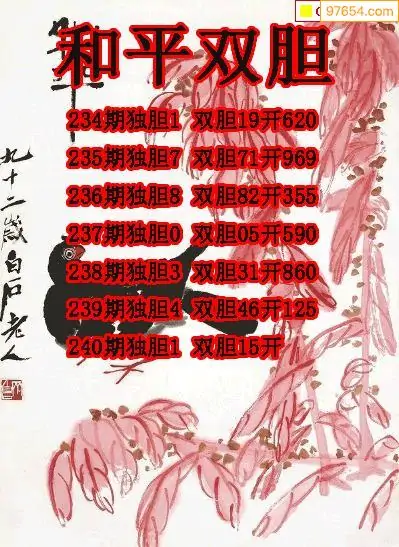 97654.com
和平双胆
234期独胆1 双胆19开620
235期独胆7 双胆71开969
236期独胆8 双胆82开355
237期独胆0 双胆05开590
238期独胆3 双胆31开860
239期独胆4 双胆46开125
240期独胆1 双胆15开
九十二岁白石老人